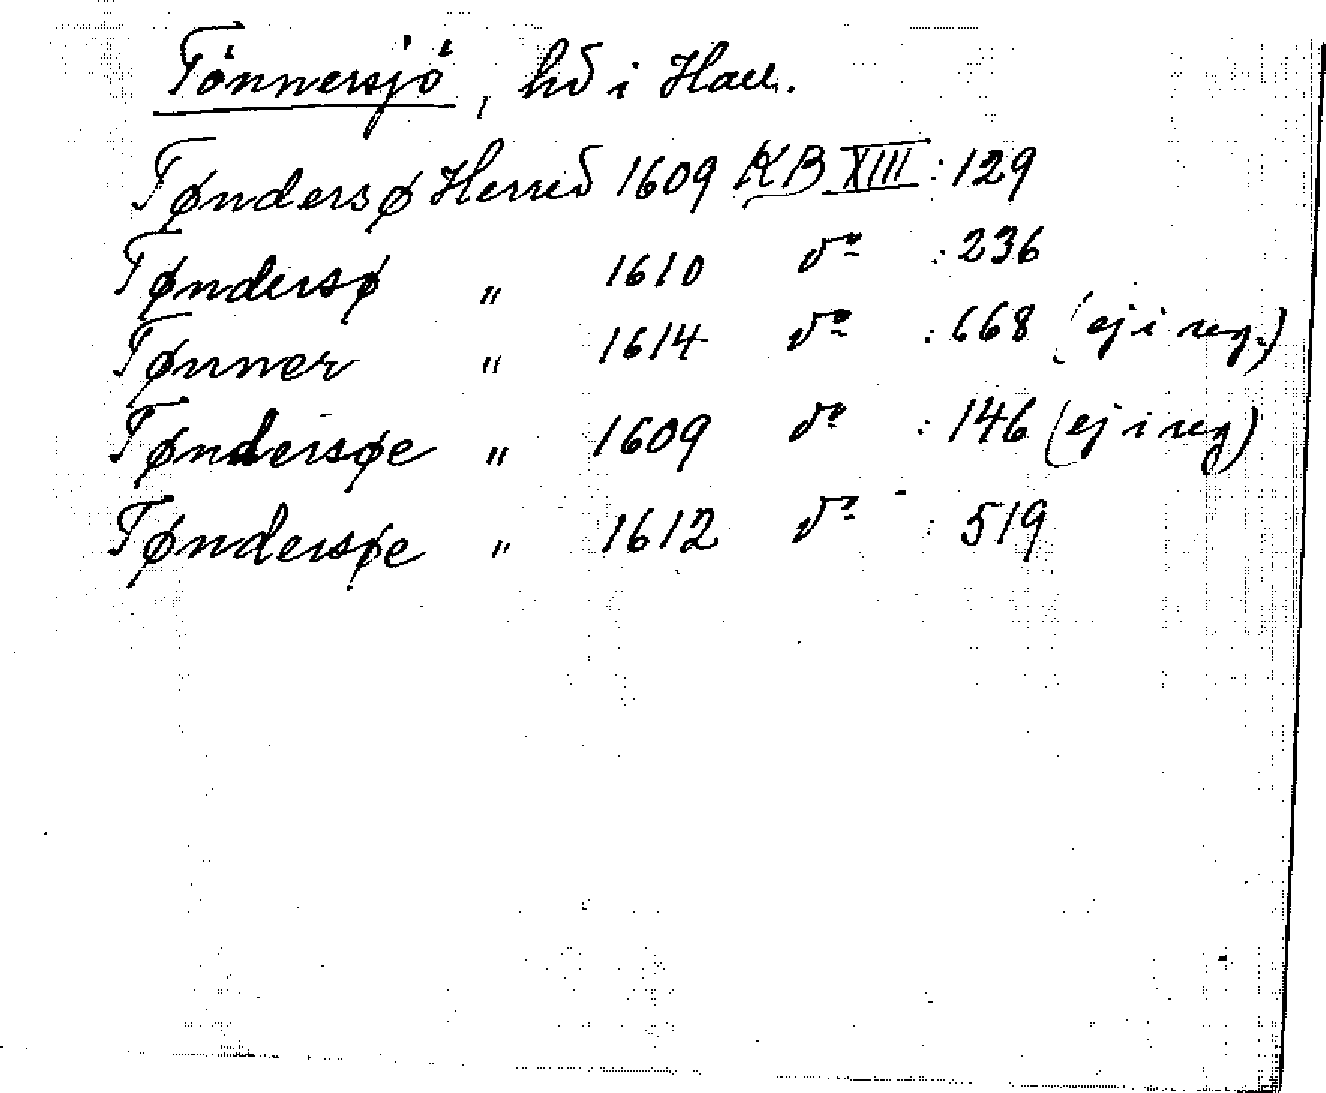 Tönnersjö, hd i Hall.
Tøndersø Herred 1609 KB XIII : 129
Tøndersø " 1610 do : 236
Tønner " 1614 do : 668 (ej i reg.)
Tøndersøe " 1609 do : 146 (ej i reg)
Tøndersøe " 1612 do : 519